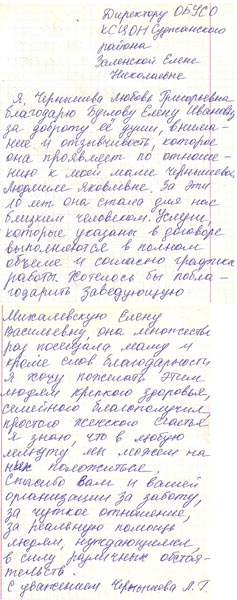 Директору ОБУСО
КЦСОН Суджанского
района
Заленской Елене
Николаевне
Я, Чернышева Любовь Григорьевна
благодарю Булову Елену Ивановну
за доброту её души, внима-
ние и отзывчивость, которое
она проявляет по отноше-
нию к моей маме Чернышевой
Людмиле Яковлевне. За эти
10 лет она стала для нас
близким человеком. Услуги,
которые указаны в договоре
выполняются в полном
объеме и согласно графика
работы. Хотелось бы побла-
годарить заведующую
Михалевскую Елену
Васильевну, она множество
раз посещала маму и
кроме слов благодарности
я хочу пожелать этим
людям крепкого здоровья,
семейного благополучия,
простого женского счастья
Я знаю, что в любую
минуту мы можем на
них положиться.
Спасибо вам и вашей
организации за заботу,
за чуткое отношение,
за реальную помощь
людям, нуждающимся
в силу различных обстоя-
тельств.
С уважением Чернышова Л.Г.